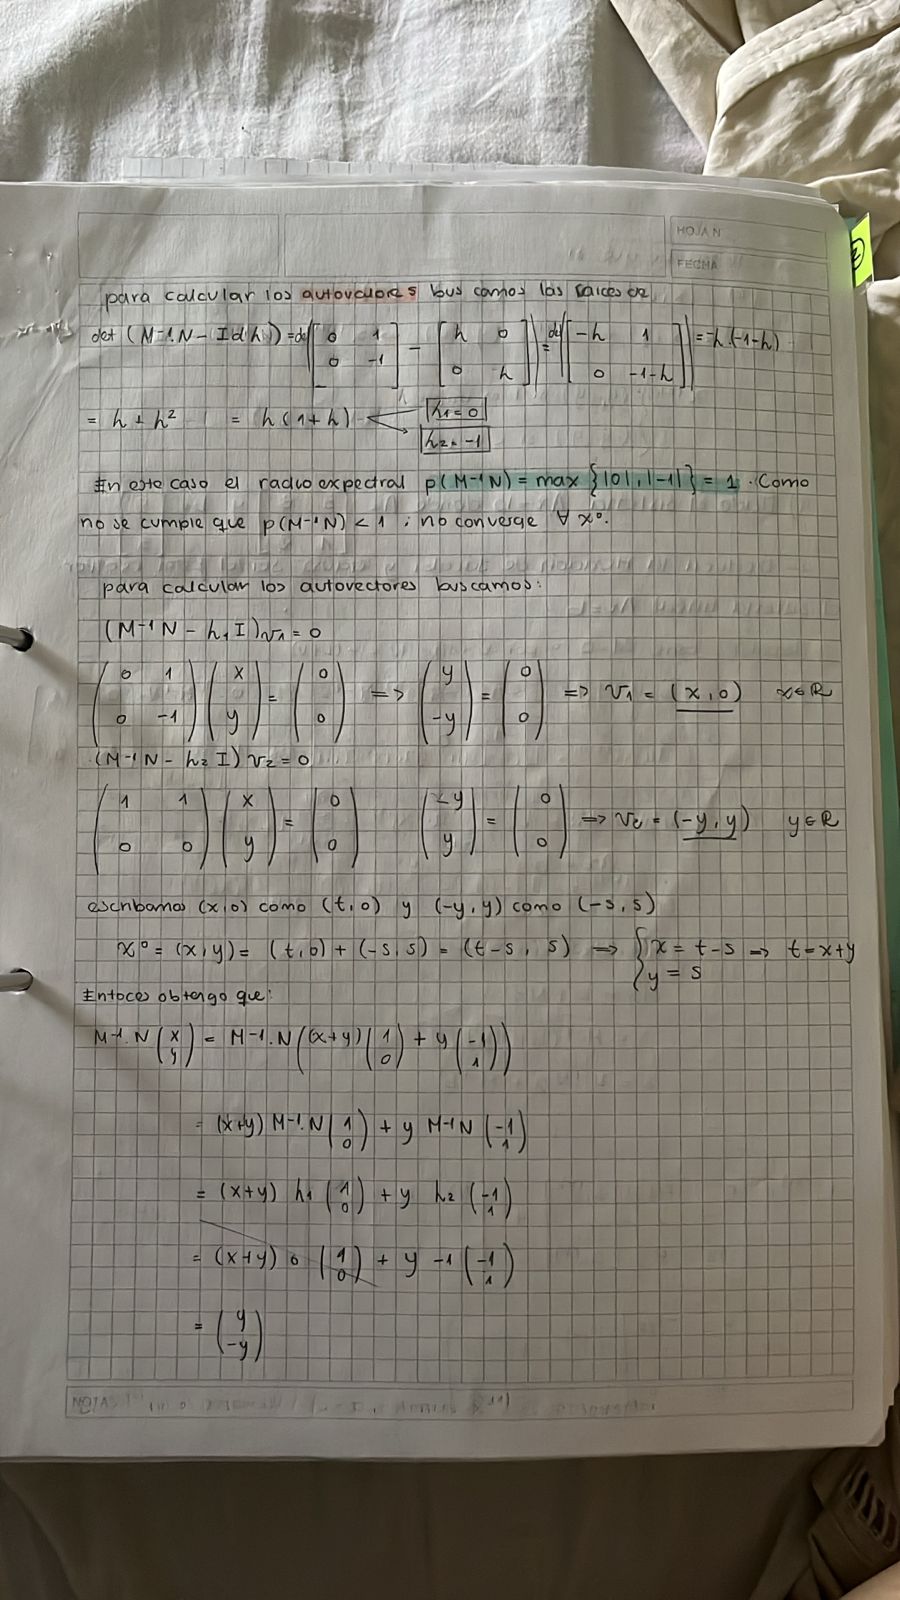 HOJA N
FECHA
para calcular los autovalores buscamos las raices de
det (M⁻¹.N - Id h) = det([0 1; 0 -1] - [h 0; 0 h]) = det([-h 1; 0 -1-h]) = -h.(-1-h)
= h + h² = h(1+h) h1=0
h2=-1
En este caso el radio expectral ρ(M⁻¹N) = max {|0|, |-1|} = 1. Como
no se cumple que ρ(M⁻¹N) < 1 ; no converge ∀ x⁰.
para calcular los autovectores buscamos:
(M⁻¹N - h1 I)v1 = 0
(0 1; 0 -1)(x; y) = (0; 0) => (y; -y) = (0; 0) => v1 = (x, 0) x∈R
(M⁻¹N - h2 I) v2 = 0
(1 1; 0 0)(x; y) = (0; 0) (-y; y) = (0; 0) => v2 = (-y, y) y∈R
escribamos (x,0) como (t,0) y (-y,y) como (-s,s)
x⁰ = (x,y) = (t,0) + (-s,s) = (t-s, s) => { x = t-s => t=x+y
y = s
Entoces obtengo que:
M⁻¹.N (x; y) = M⁻¹.N ((x+y)(1; 0) + y(-1; 1))
= (x+y) M⁻¹.N (1; 0) + y M⁻¹N (-1; 1)
= (x+y) h1 (1; 0) + y h2 (-1; 1)
= (x+y) 0 (1; 0) + y -1 (-1; 1)
= (y; -y)
NOTA